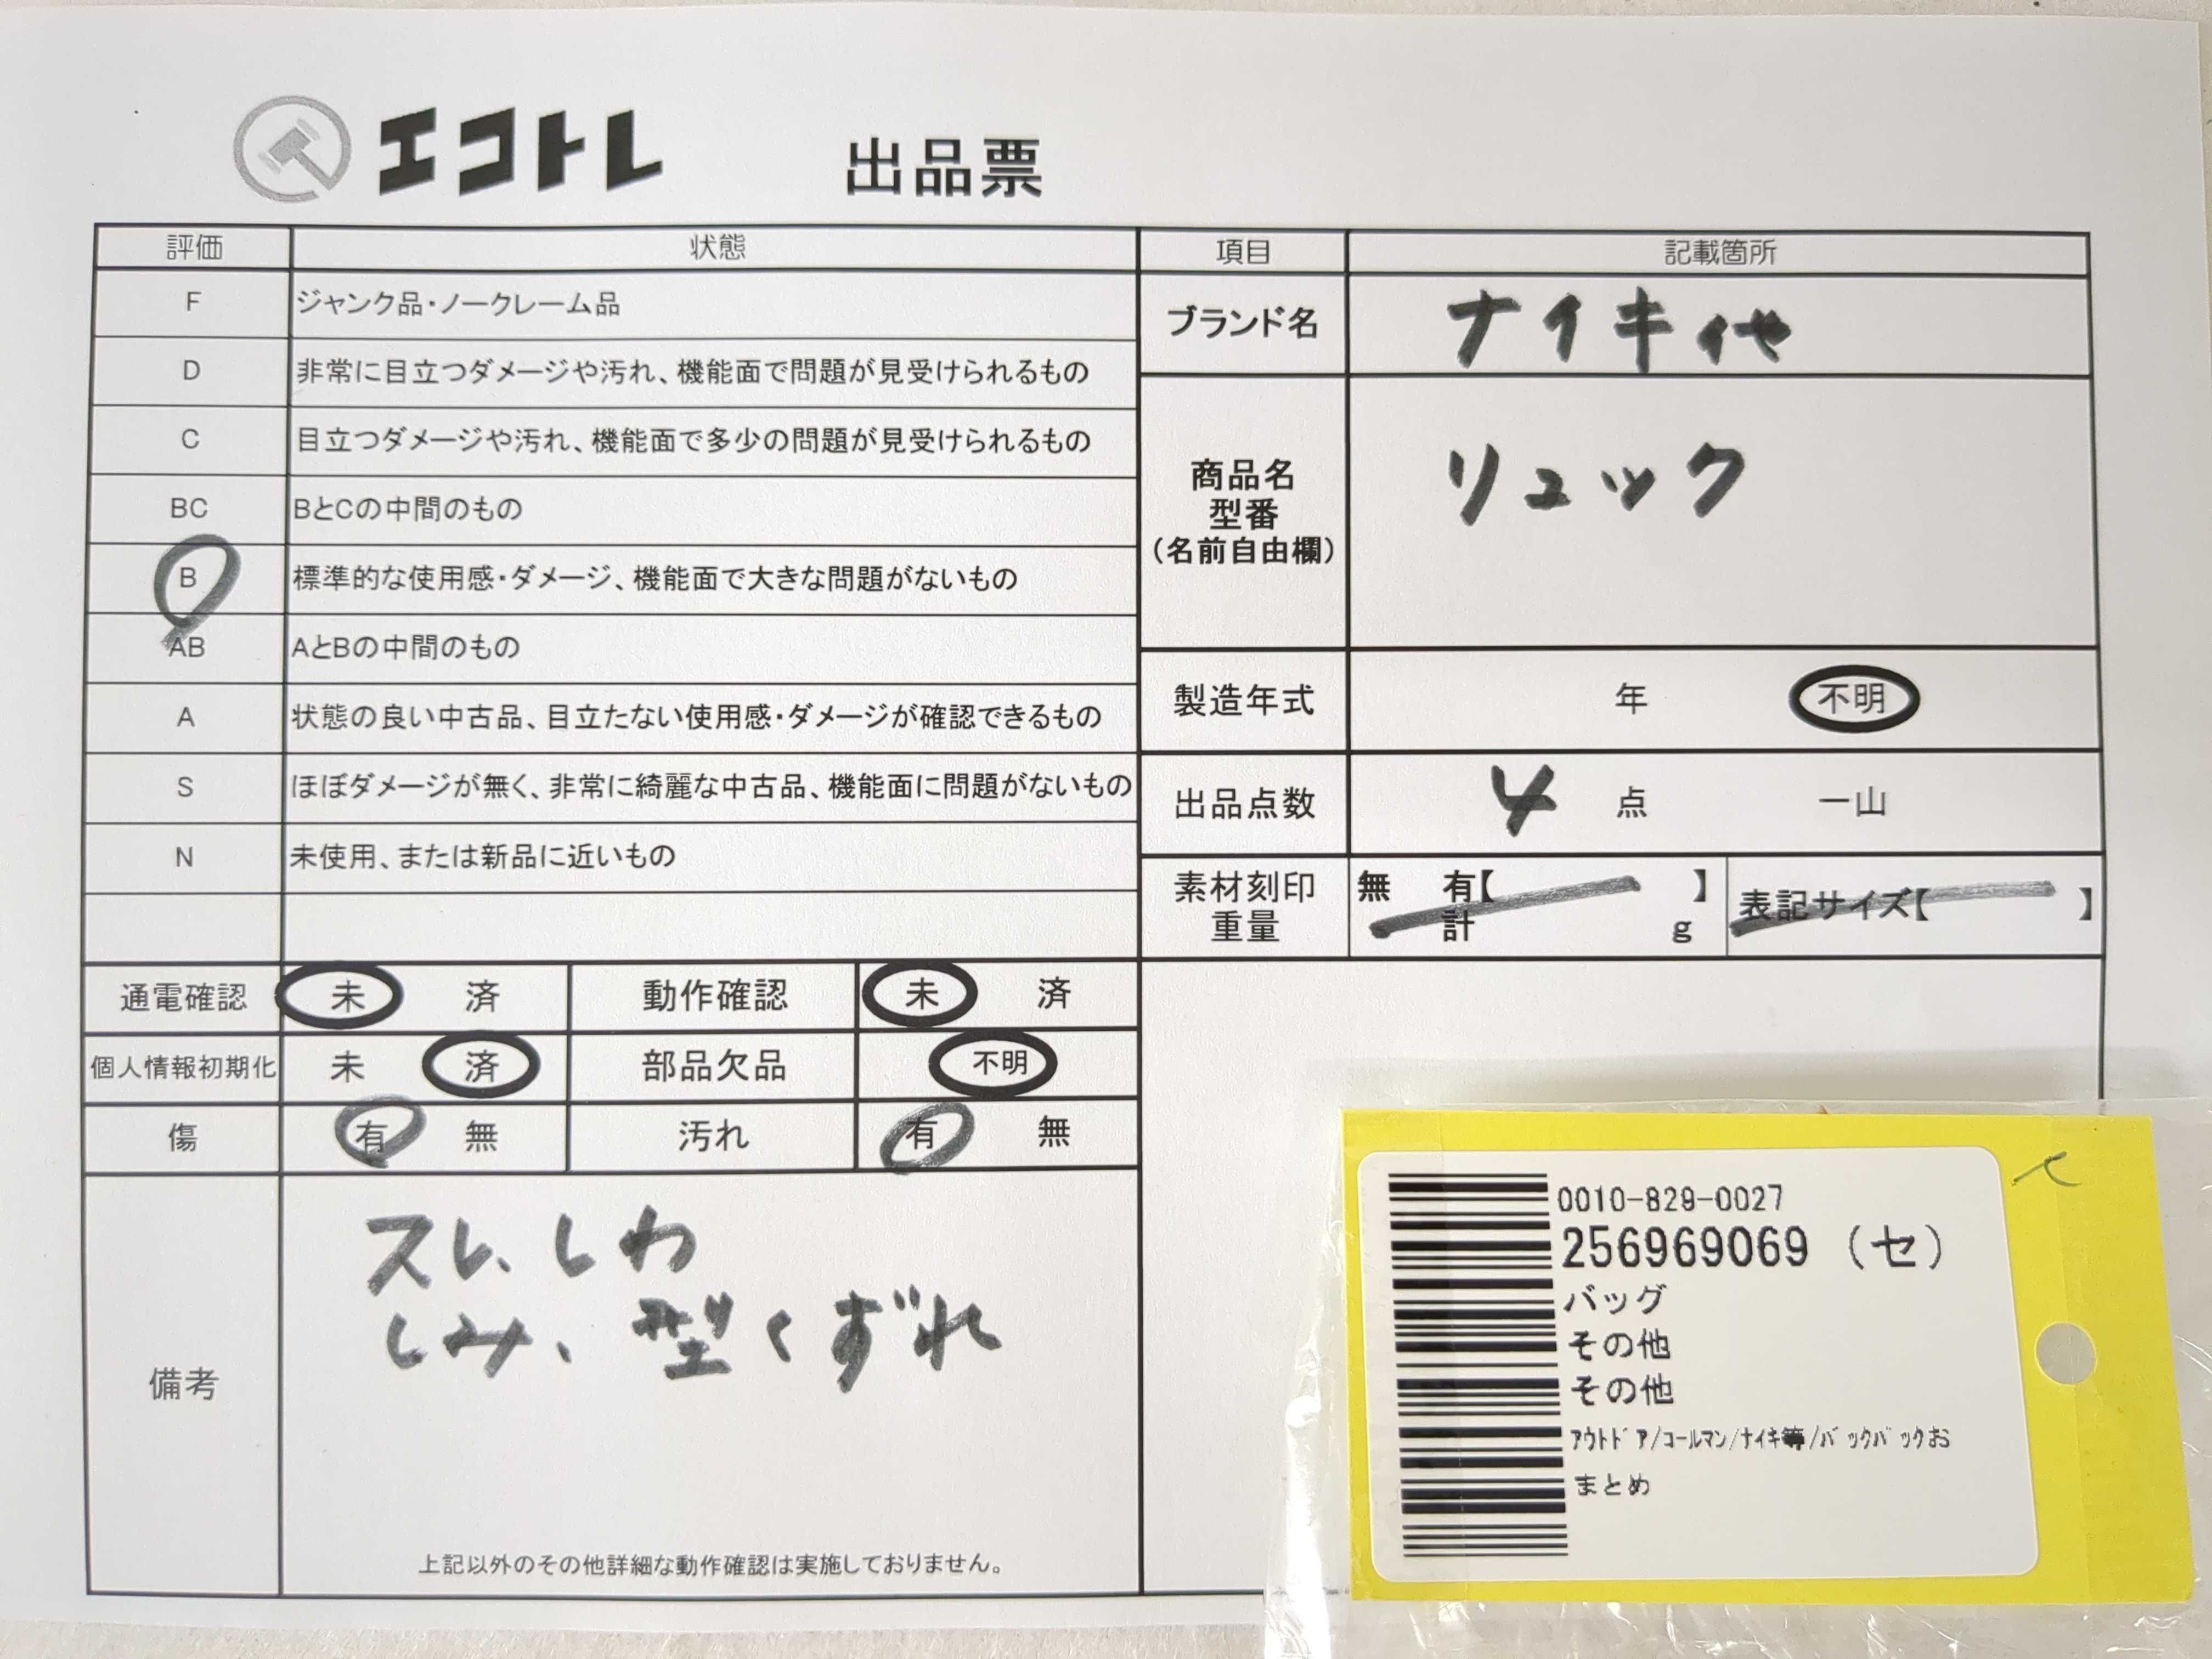 エコトレ 出品票
評価 状態
F ジャンク品・ノークレーム品
D 非常に目立つダメージや汚れ、機能面で問題が見受けられるもの
C 目立つダメージや汚れ、機能面で多少の問題が見受けられるもの
BC BとCの中間のもの
B 標準的な使用感・ダメージ、機能面で大きな問題がないもの
AB AとBの中間のもの
A 状態の良い中古品、目立たない使用感・ダメージが確認できるもの
S ほぼダメージが無く、非常に綺麗な中古品、機能面に問題がないもの
N 未使用、または新品に近いもの
通電確認 未 済 動作確認 未 済
個人情報初期化 未 済 部品欠品 不明
傷 有 無 汚れ 有 無
備考
スレ、しわ
しみ、型くずれ
上記以外のその他詳細な動作確認は実施しておりません。
項目 記載箇所
ブランド名 ナイキ他
商品名
型番
(名前自由欄)
リュック
製造年式 年 不明
出品点数 4 点 一山
素材刻印
重量
無 有【 】
計 g
表記サイズ【 】
0010-829-0027
256969069 (セ)
バッグ
その他
その他
ｱｳﾄﾄﾞｱ/ｺｰﾙﾏﾝ/ﾅｲｷ等/ﾊﾞｯｸﾊﾞｯｸお
まとめ